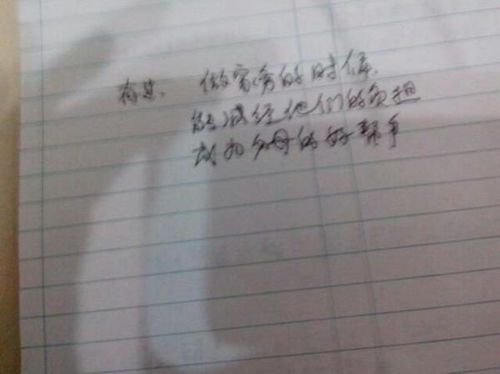 有些，做家务的时候，
能减轻他们的负担
成为父母的好帮手